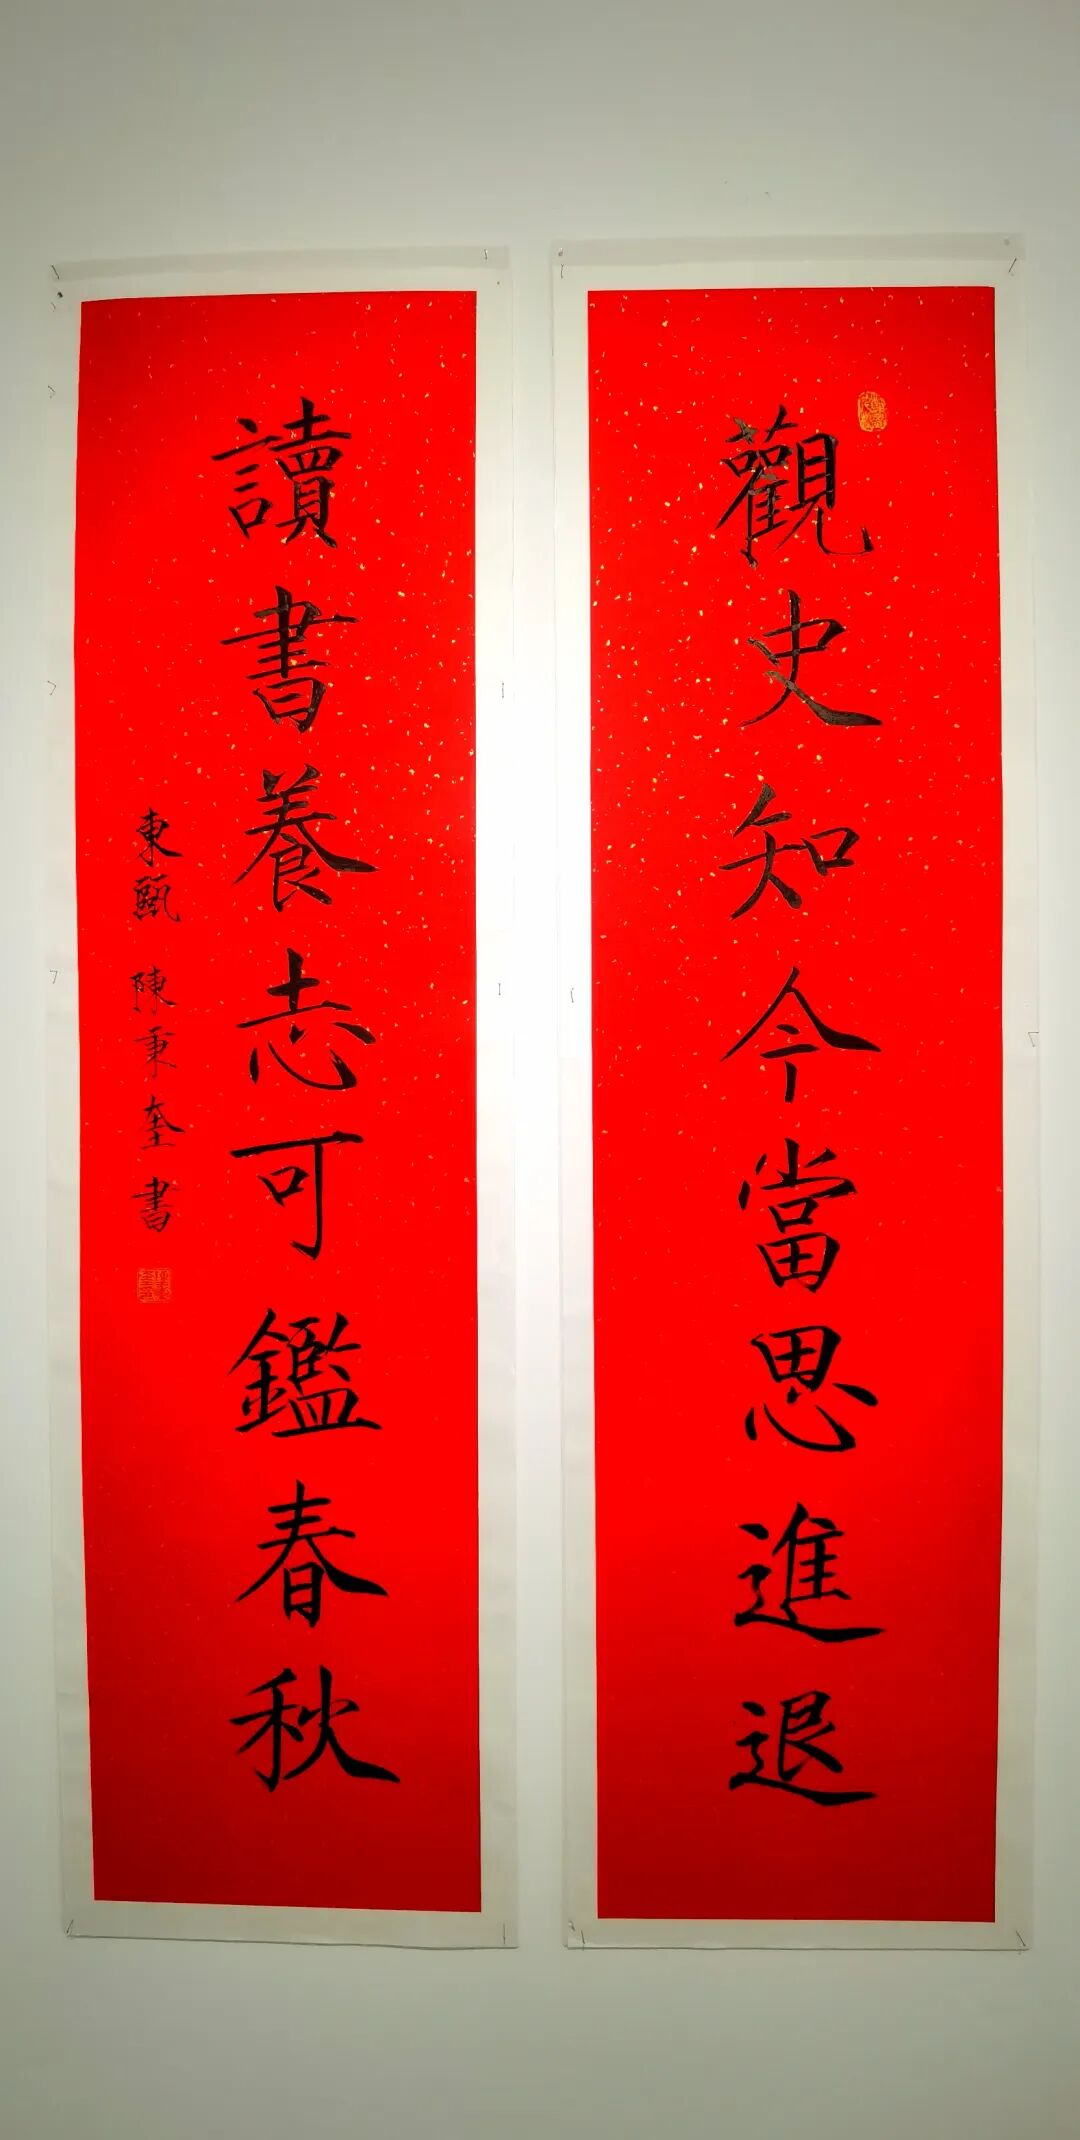 觀史知今當思進退
讀書養志可鑑春秋
東甌 陳秉奎書